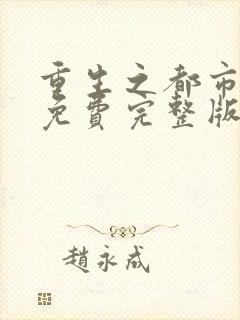 重生之都市
免費完整版
趙永成